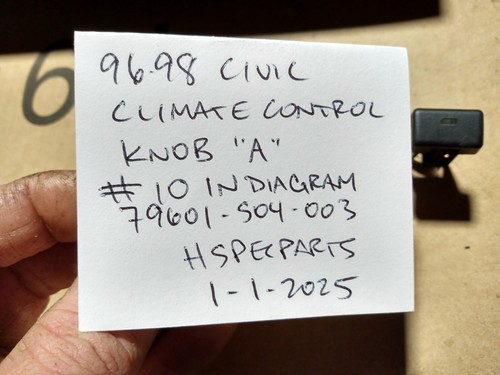 96-98 CIVIC
CLIMATE CONTROL
KNOB "A"
# 10 IN DIAGRAM
79601-S04-003
HSPECPARTS
1-1-2025
6